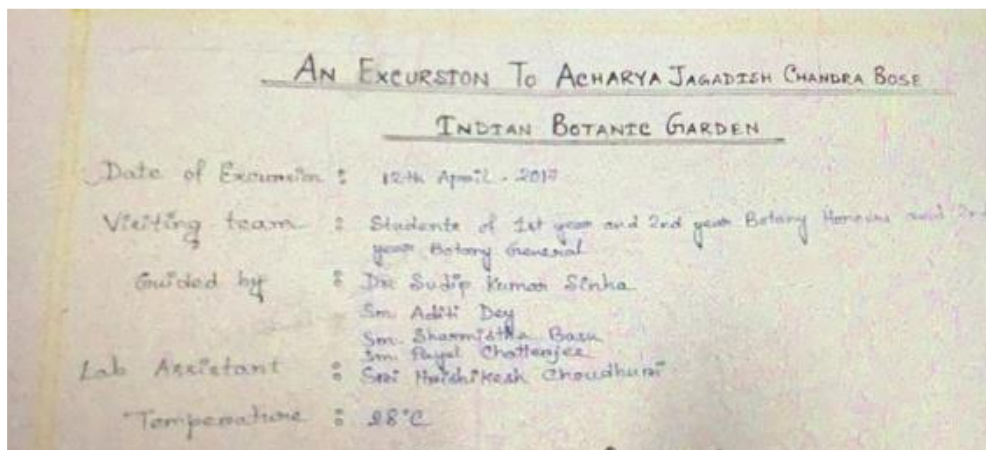 AN EXCURSION TO ACHARYA JAGADISH CHANDRA BOSE
INDIAN BOTANIC GARDEN
Date of Excursion : 12th April - 2017
Visiting team : Students of 1st year and 2nd year Botany Honours and 2nd
year Botany General
Guided by : Dr Sudip Kumar Sinha
Sm Aditi Dey
Sm Sharmistha Basu
Sm Payel Chatterjee
Lab Assistant : Sri Hrishikesh Choudhuri
Temperature : 28°C